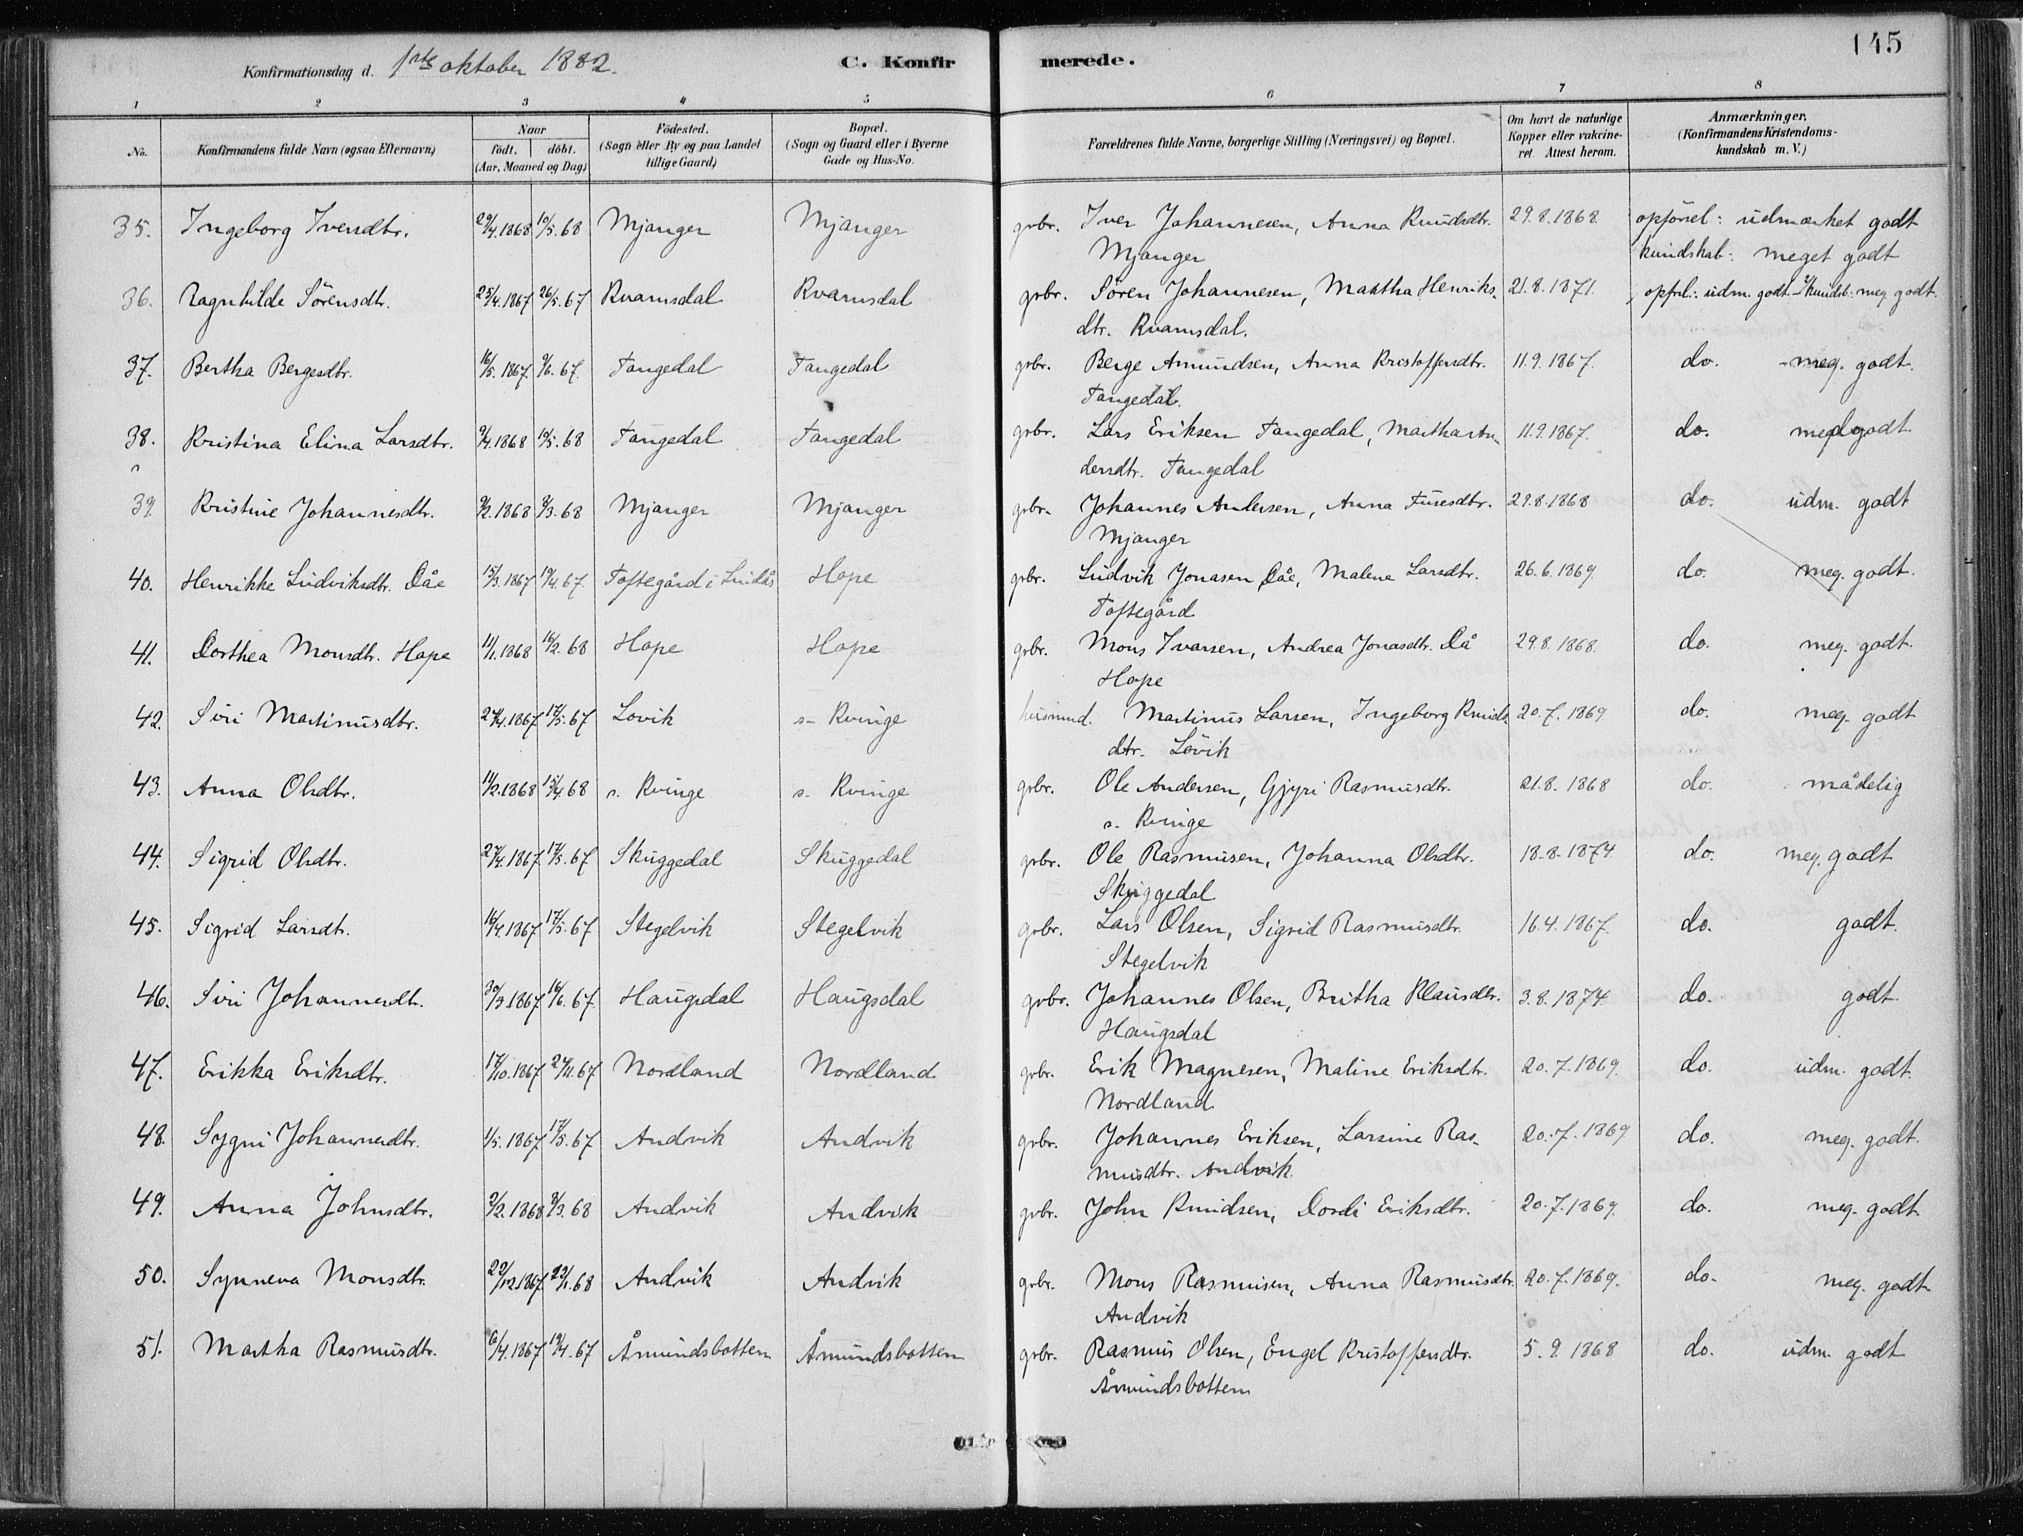 145
Konfirmationsdag d. 1ste oktober 1882.
C. Konfirmerede.
1 2 3 4 5 6 7 8
No. Konfirmandens fulde Navn (ogsaa Efternavn) Naar födt. döbt. (Aar, Maaned og Dag) Födested. (Sogn eller By og paa Landet tillige Gaard) Bopæl. (Sogn og Gaard eller i Byerne Gade og Hus-No. Forældrenes fulde Navne, borgerlige Stilling (Næringsvei) og Bopæl. Om havt de naturlige Kopper eller vakcineret. Attest herom. Anmærkninger. (Konfirmandens Kristendomskundskab m. V.)
35. Ingeborg Iversdtr. 29/4.1868 10/5.68 Mjanger Mjanger grbr. Iver Johannesen, Anna Knudsdtr. 29.8.1868 opförsel: udmærket godt
Mjanger kundskab: meget godt
36. Ragnhilde Sörensdtr. 25/4.1867 26/5.67 Kvamsdal Kvamsdal grbr. Sören Johannesen, Martha Henriks- 21.8.1871. opfrsl.: udm. godt - kundsk: meg. godt.
dtr. Kvamsdal.
37. Bertha Bergesdtr. 16/5.1867. 9/6.67. Tangedal Tangedal grbr. Berge Amundsen, Anna Kristoffersdtr. 11.9.1867. do. - meg. godt.
Tangedal.
38. Kristina Elina Larsdtr. 9/4.1868 10/5.68 Tangedal Tangedal grbr. Lars Eriksen Tangedal, Martha An- 11.9.1867. do. meg. godt.
dersdtr. Tangedal
39. Kristine Johannesdtr. 9/2.1868 8/3.68 Mjanger Mjanger grbr. Johannes Andersen, Anna Tuesdtr. 29.8.1868 do. udm. godt
Mjanger
40. Henrikke Ludviksdtr. Dåe 15/3.1867 19/4.67. Toftegård i Lindås Hope grbr. Ludvik Jonasen Dåe, Malene Larsdtr. 26.6.1869. do. meg. godt.
Toftegård
41. Dorthea Monsdtr. Hope 11/1.1868 16/2.68 Hope Hope grbr. Mons Ivarsen, Andrea Jonasdtr. Då 29.8.1868. do. meg. godt.
Hope
42. Siri Martinusdtr. 27/4.1867 17/5.67 Lovik s- Kvinge husmnd. Martinus Larsen, Ingeborg Knuds- 20.7.1869. do. meg. godt
dtr. Lövik
43. Anna Olsdtr. 11/2.1868 15/4.68 s. Kvinge s. Kvinge grbr. Ole Andersen, Gjyri Rasmusdtr. 21.8.1868 do. mådelig
s. Kvinge
44. Sigrid Olsdtr. 27/4.1867 17/5.67 Skuggedal Skuggedal grbr. Ole Rasmusen, Johanna Olsdtr. 18.8.1874 do. meg. godt
Skuggedal
45. Sigrid Larsdtr. 16/4.1867 17/5.67 Stegelvik Stegelvik grbr. Lars Olsen, Sigrid Rasmusdtr. 16.4.1867. do. godt.
Stegelvik
46. Siri Johannesdtr. 30/3.1867 16/6.67. Haugsdal Haugsdal grbr. Johannes Olsen, Britha Klausdtr. 3.8.1874. do. godt.
Haugsdal
47. Erikka Eriksdtr. 17/10.1867 24/11.67 Nordland Nordland grbr. Erik Magnesen, Maline Eriksdtr. 20.7.1869. do. udm. godt.
Nordland
48. Sygni Johannesdtr. 1/5.1867 17/5.67 Andvik Andvik grbr. Johannes Eriksen, Larsine Ras- 20.7.1869 do. meg. godt.
musdtr. Andvik.
49. Anna Johnsdtr. 2/2.1868 8/3.68 Andvik Andvik grbr. John Knudsen, Dordi Eriksdtr. 20.7.1869. do. meg. godt.
50. Synneva Monsdtr. 22/12.1867 22/1.68 Andvik Andvik grbr. Mons Rasmusen, Anna Rasmusdtr. 20.7.1869. do. meg. godt
Andvik
51. Martha Rasmusdtr. 6/4.1867 19/4.67 Åmundsbotten Åmundsbotten grbr. Rasmus Olsen, Engel Kristoffersdtr. 5.9.1868 do. udm. godt
Åmundsbotten